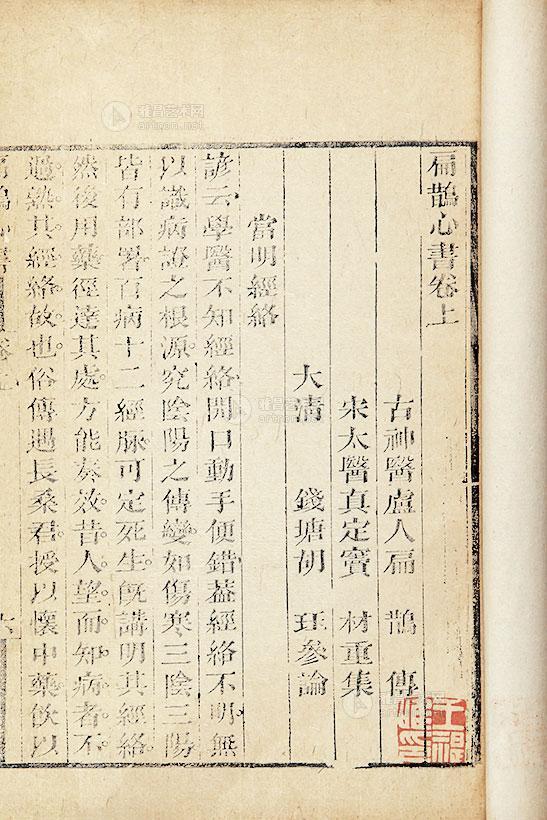 扁鵲心書卷上
古神醫盧人扁 鵲 傳
宋太醫真定竇 材重集
大淸 錢塘胡 珏參論
當明經絡
諺云學醫不知經絡開口動手便錯葢經絡不明無
以識病證之根源究陰陽之傳變如傷寒三陰三陽
皆有部署百病十二經脉可定死生旣講明其經絡
然後用藥徑達其處方能奏效昔人望而知病者不
過熟其經絡故也俗傳遇長桑君授以懷中藥飮以
扁鵲心書 卷上 六
雅昌艺术网
artron.net